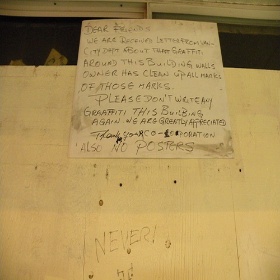 DEAR FRIENDS
WE ARE RECEIVED LETTER FROM
CITY DEPT. ABOUT THAT GRAFFITI.
AROUND THIS BUILDING WALLS
OWNER HAS CLEAN UP ALL MARKS
OF THOSE MARKS.
PLEASE DON'T WRITE ANY
GRAFFITI THIS BUILDING
AGAIN WE ARE GREATLY APPRECIATED
Thank you CO-OPORATION
ALSO NO POSTERS
NEVER!